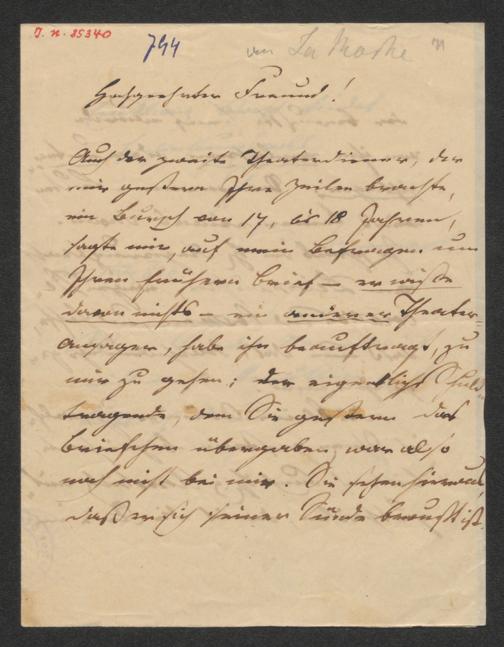 J. N. 35340
744
von La Roche
Hochgeehrter Freund!
Auch der zweite Theaterdiener, der
mir gestern Ihre Zeilen brachte,
ein Bursch von 17, bis 18 Jahren,
sagte mir, auf mein Befragen um
Ihren frühern Brief – er wiße
davon nichts – ein anderer Theater-
ansager, habe ihn beauftragt, zu
mir zu gehen; der eigentlich Schuld
tragende, dem Sie gestern das
Briefchen übergaben, war also
noch nicht bei mir. Sie sehen hieraus,
daß er sich seiner Sünde bewußt ist.